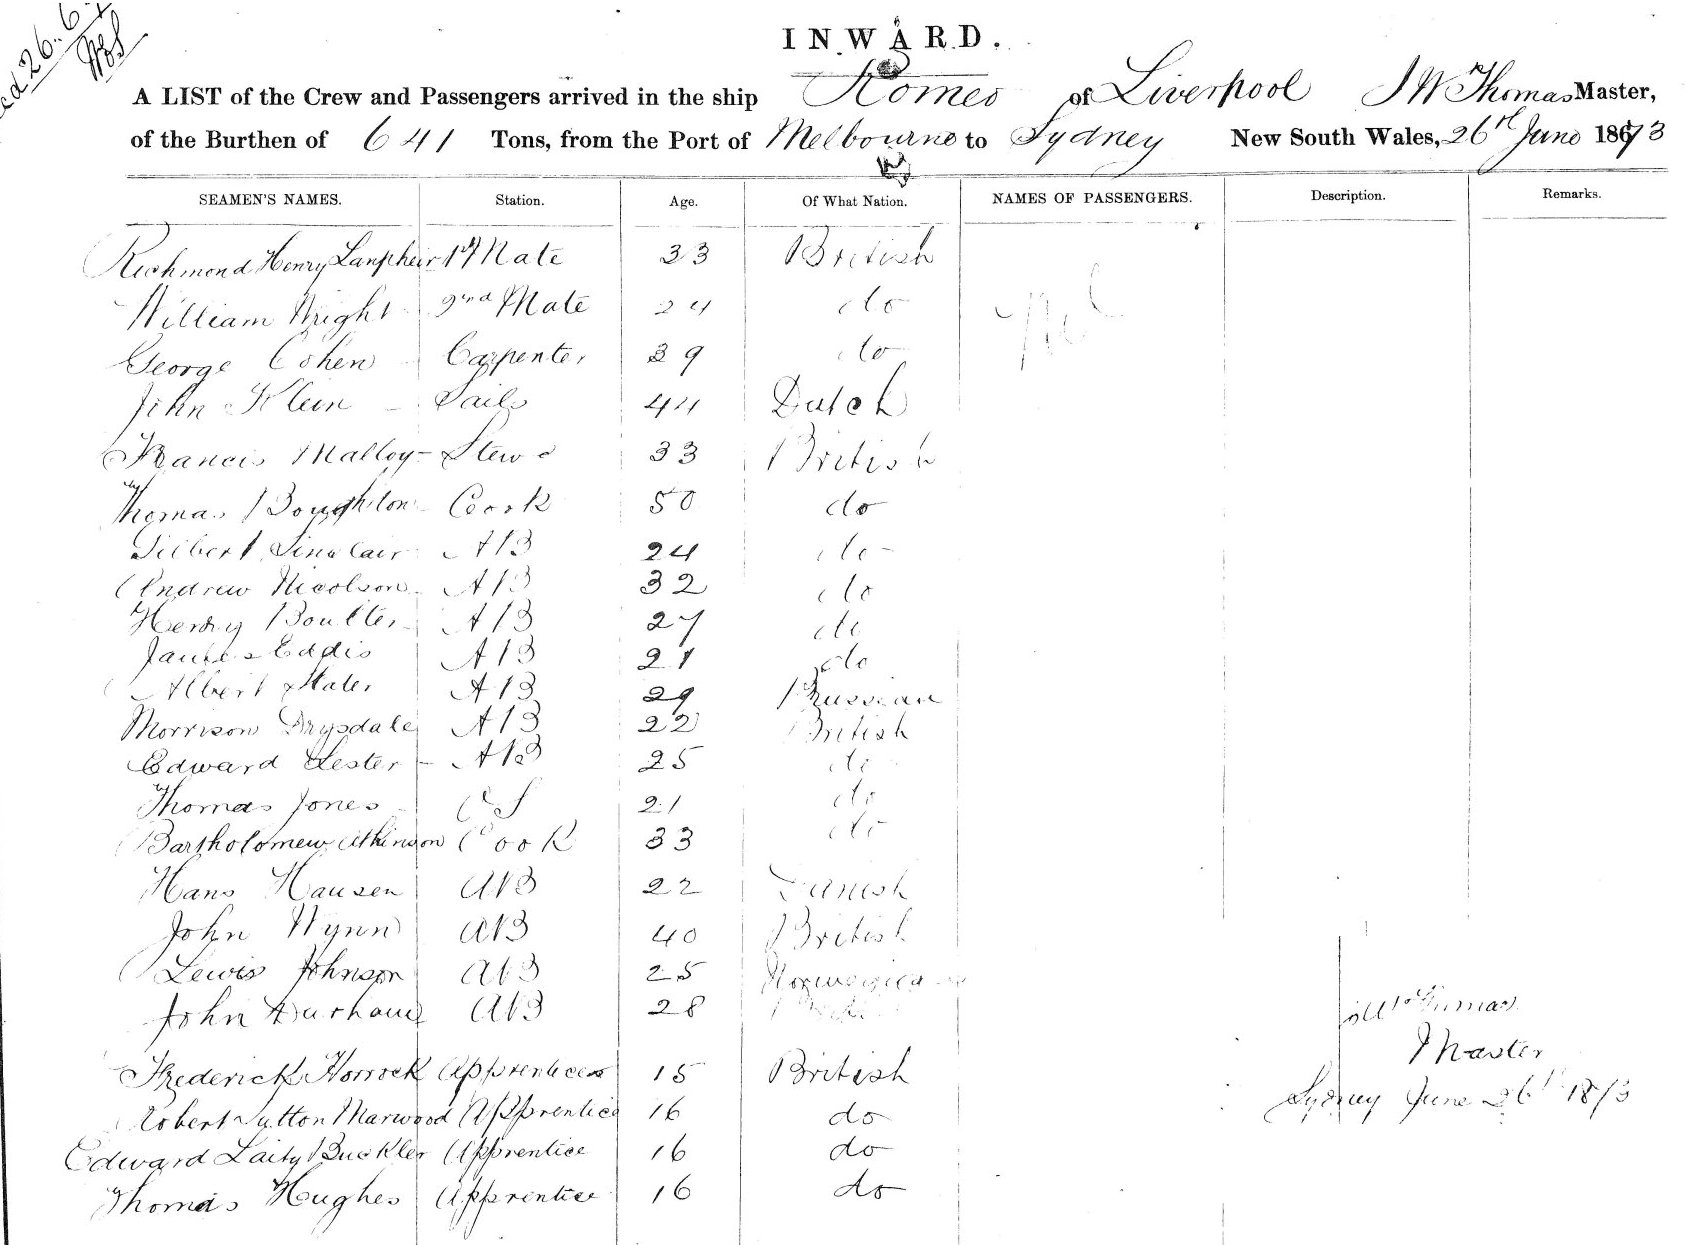 26.6.7
INWARD.
A LIST of the Crew and Passengers arrived in the ship Romeo of Liverpool J W Thomas Master,
of the Burthen of 641 Tons, from the Port of Melbourne to Sydney New South Wales, 26th June 1873
SEAMEN'S NAMES. Station. Age. Of What Nation. NAMES OF PASSENGERS. Description. Remarks.
Richmond Henry Lanphier 1st Mate 33 British
William Wright 2nd Mate 24 do Nil
George Cohen Carpenter 39 do
John Klein Sails 44 Dutch
Francis Malloy Stewd 33 British
Thomas Boughton Cook 50 do
Gilbert Sinclair AB 24 do
Andrew Nicolson AB 32 do
Henry Boulter AB 27 do
James Eddis AB 21 do
Albert AB 29
Morrison Drysdale AB 22 British
Edward Lester AB 25 do
Thomas Jones OS 21 do
Bartholomew Atkinson Cook 33 do
Hans Hansen AB 22 Danish
John Wynn AB 40 British
Lewis Johnson AB 25 Norwegian
John Durham AB 28
Master
Frederick Horrock Apprentices 15 British
Sydney June 26th 1873
Robert Sutton Marwood Apprentice 16 do
Edward Laity Buckler Apprentice 16 do
Thomas Hughes Apprentice 16 do